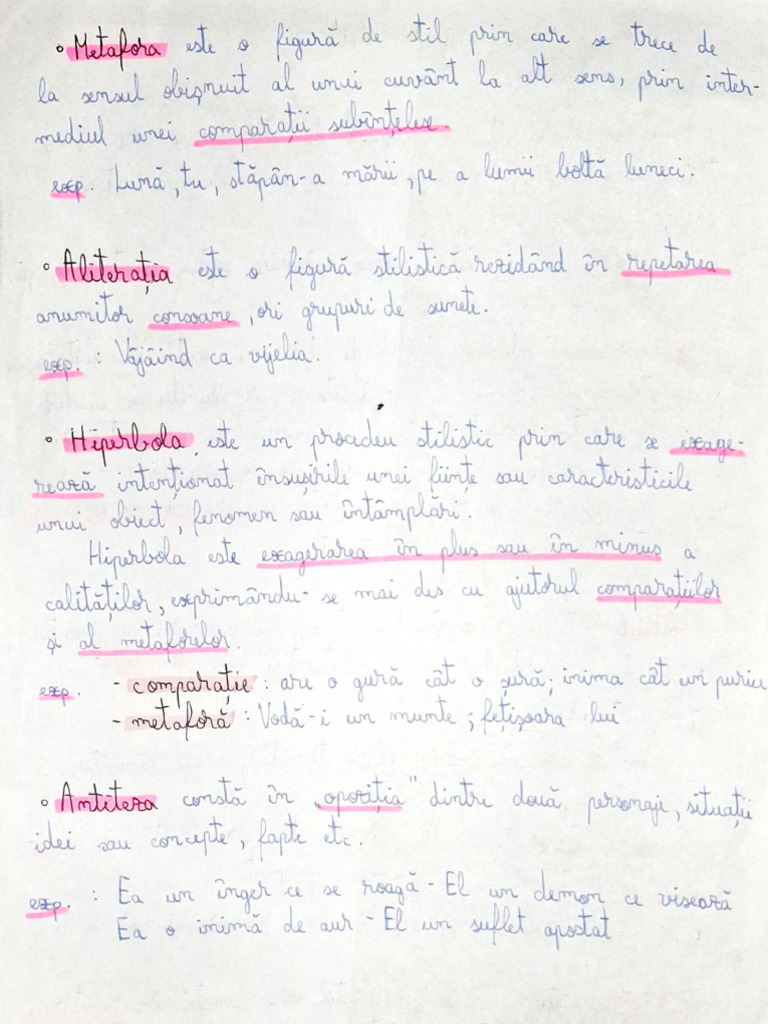 ° Metafora este o figură de stil prin care se trece de
la sensul obișnuit al unui cuvânt la alt sens, prin inter-
mediul unei comparații subînțelese.
exp. Lună, tu, stăpân-a mării, pe a lumii boltă luneci.
° Aliterația este o figură stilistică rezidând în repetarea
anumitor consoane, ori grupuri de sunete.
exp. : Vâjâind ca vijelia.
° Hiperbola este un procedeu stilistic prin care se exage-
rează intenționat însușirile unei ființe sau caracteristicile
unui obiect, fenomen sau întâmplări.
Hiperbola este exagerarea în plus sau în minus a
calităților, exprimându-se mai des cu ajutorul comparațiilor
și al metaforelor.
exp. - comparație : are o gură cât o șură; inima cât un purice
- metaforă : Vodă-i un munte; fețișoara lui
° Antiteza constă în „opoziția" dintre două personaje, situații
idei sau concepte, fapte etc.
exp. : Ea un înger ce se roagă - El un demon ce visează
Ea o inimă de aur - El un suflet apostat